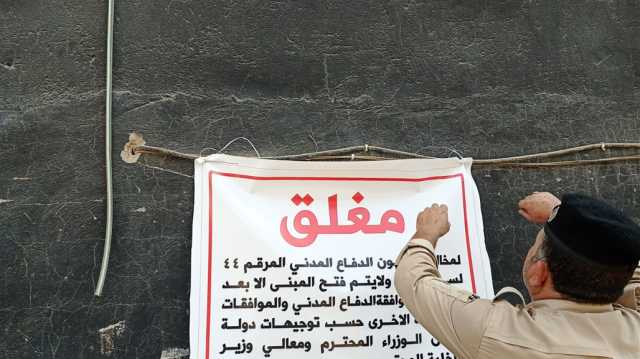 مغلق
لمخال ون الدفاع المدني المرقم ٤٤
لس ولايتم فتح المبنى الا بعد
وافقةالدفاع المدني والموافقات
الاخرى حسب توجيهات دولة
الوزراء المحترم ومعالي وزير